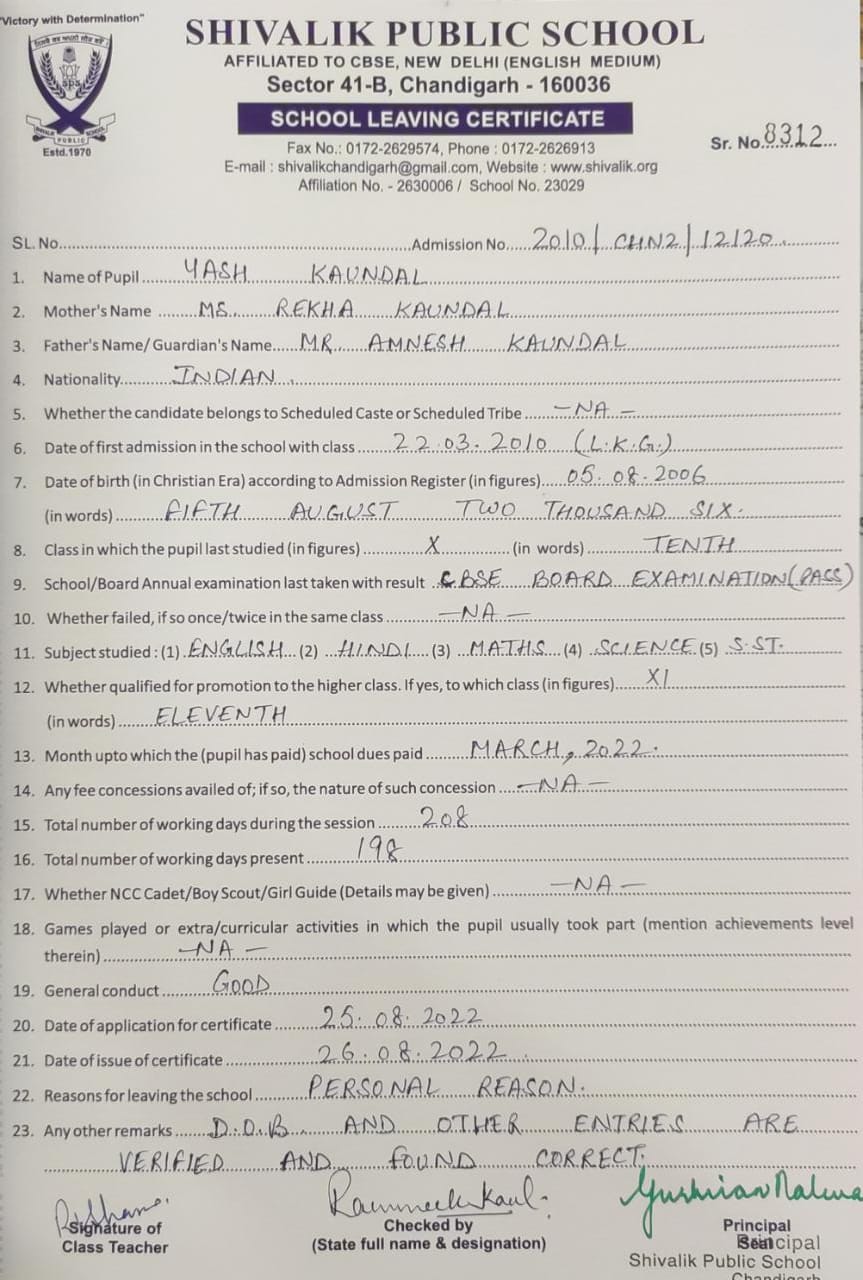 "Victory with Determination"
SHIVALIK PUBLIC SCHOOL
AFFILIATED TO CBSE, NEW DELHI (ENGLISH MEDIUM)
Sector 41-B, Chandigarh - 160036
SCHOOL LEAVING CERTIFICATE
SPS
SHIVALIK PUBLIC SCHOOL
Estd.1970
Fax No.: 0172-2629574, Phone : 0172-2626913
Sr. No. 8312
E-mail : shivalikchandigarh@gmail.com, Website : www.shivalik.org
Affiliation No. - 2630006 / School No. 23029
SL. No. Admission No. 2010/CHN2/12120
1. Name of Pupil YASH KAUNDAL
2. Mother's Name MS. REKHA KAUNDAL
3. Father's Name/ Guardian's Name MR. AMNESH KAUNDAL
4. Nationality INDIAN
5. Whether the candidate belongs to Scheduled Caste or Scheduled Tribe -NA-
6. Date of first admission in the school with class 22.03.2010 (L.K.G.)
7. Date of birth (in Christian Era) according to Admission Register (in figures) 05.08.2006
(in words) FIFTH AUGUST TWO THOUSAND SIX.
8. Class in which the pupil last studied (in figures) X (in words) TENTH
9. School/Board Annual examination last taken with result CBSE BOARD EXAMINATION (PASS)
10. Whether failed, if so once/twice in the same class -NA-
11. Subject studied : (1) ENGLISH (2) HINDI (3) MATHS (4) SCIENCE (5) S.ST.
12. Whether qualified for promotion to the higher class. If yes, to which class (in figures) XI
(in words) ELEVENTH
13. Month upto which the (pupil has paid) school dues paid MARCH, 2022.
14. Any fee concessions availed of; if so, the nature of such concession -NA-
15. Total number of working days during the session 208
16. Total number of working days present 198
17. Whether NCC Cadet/Boy Scout/Girl Guide (Details may be given) -NA-
18. Games played or extra/curricular activities in which the pupil usually took part (mention achievements level
therein) -NA-
19. General conduct GOOD
20. Date of application for certificate 25.08.2022
21. Date of issue of certificate 26.08.2022
22. Reasons for leaving the school PERSONAL REASON.
23. Any other remarks D.O.B AND OTHER ENTRIES ARE
VERIFIED AND FOUND CORRECT.
Signature of
Class Teacher
Checked by
(State full name & designation)
Principal
Seal
Principal
Shivalik Public School
Chandigarh